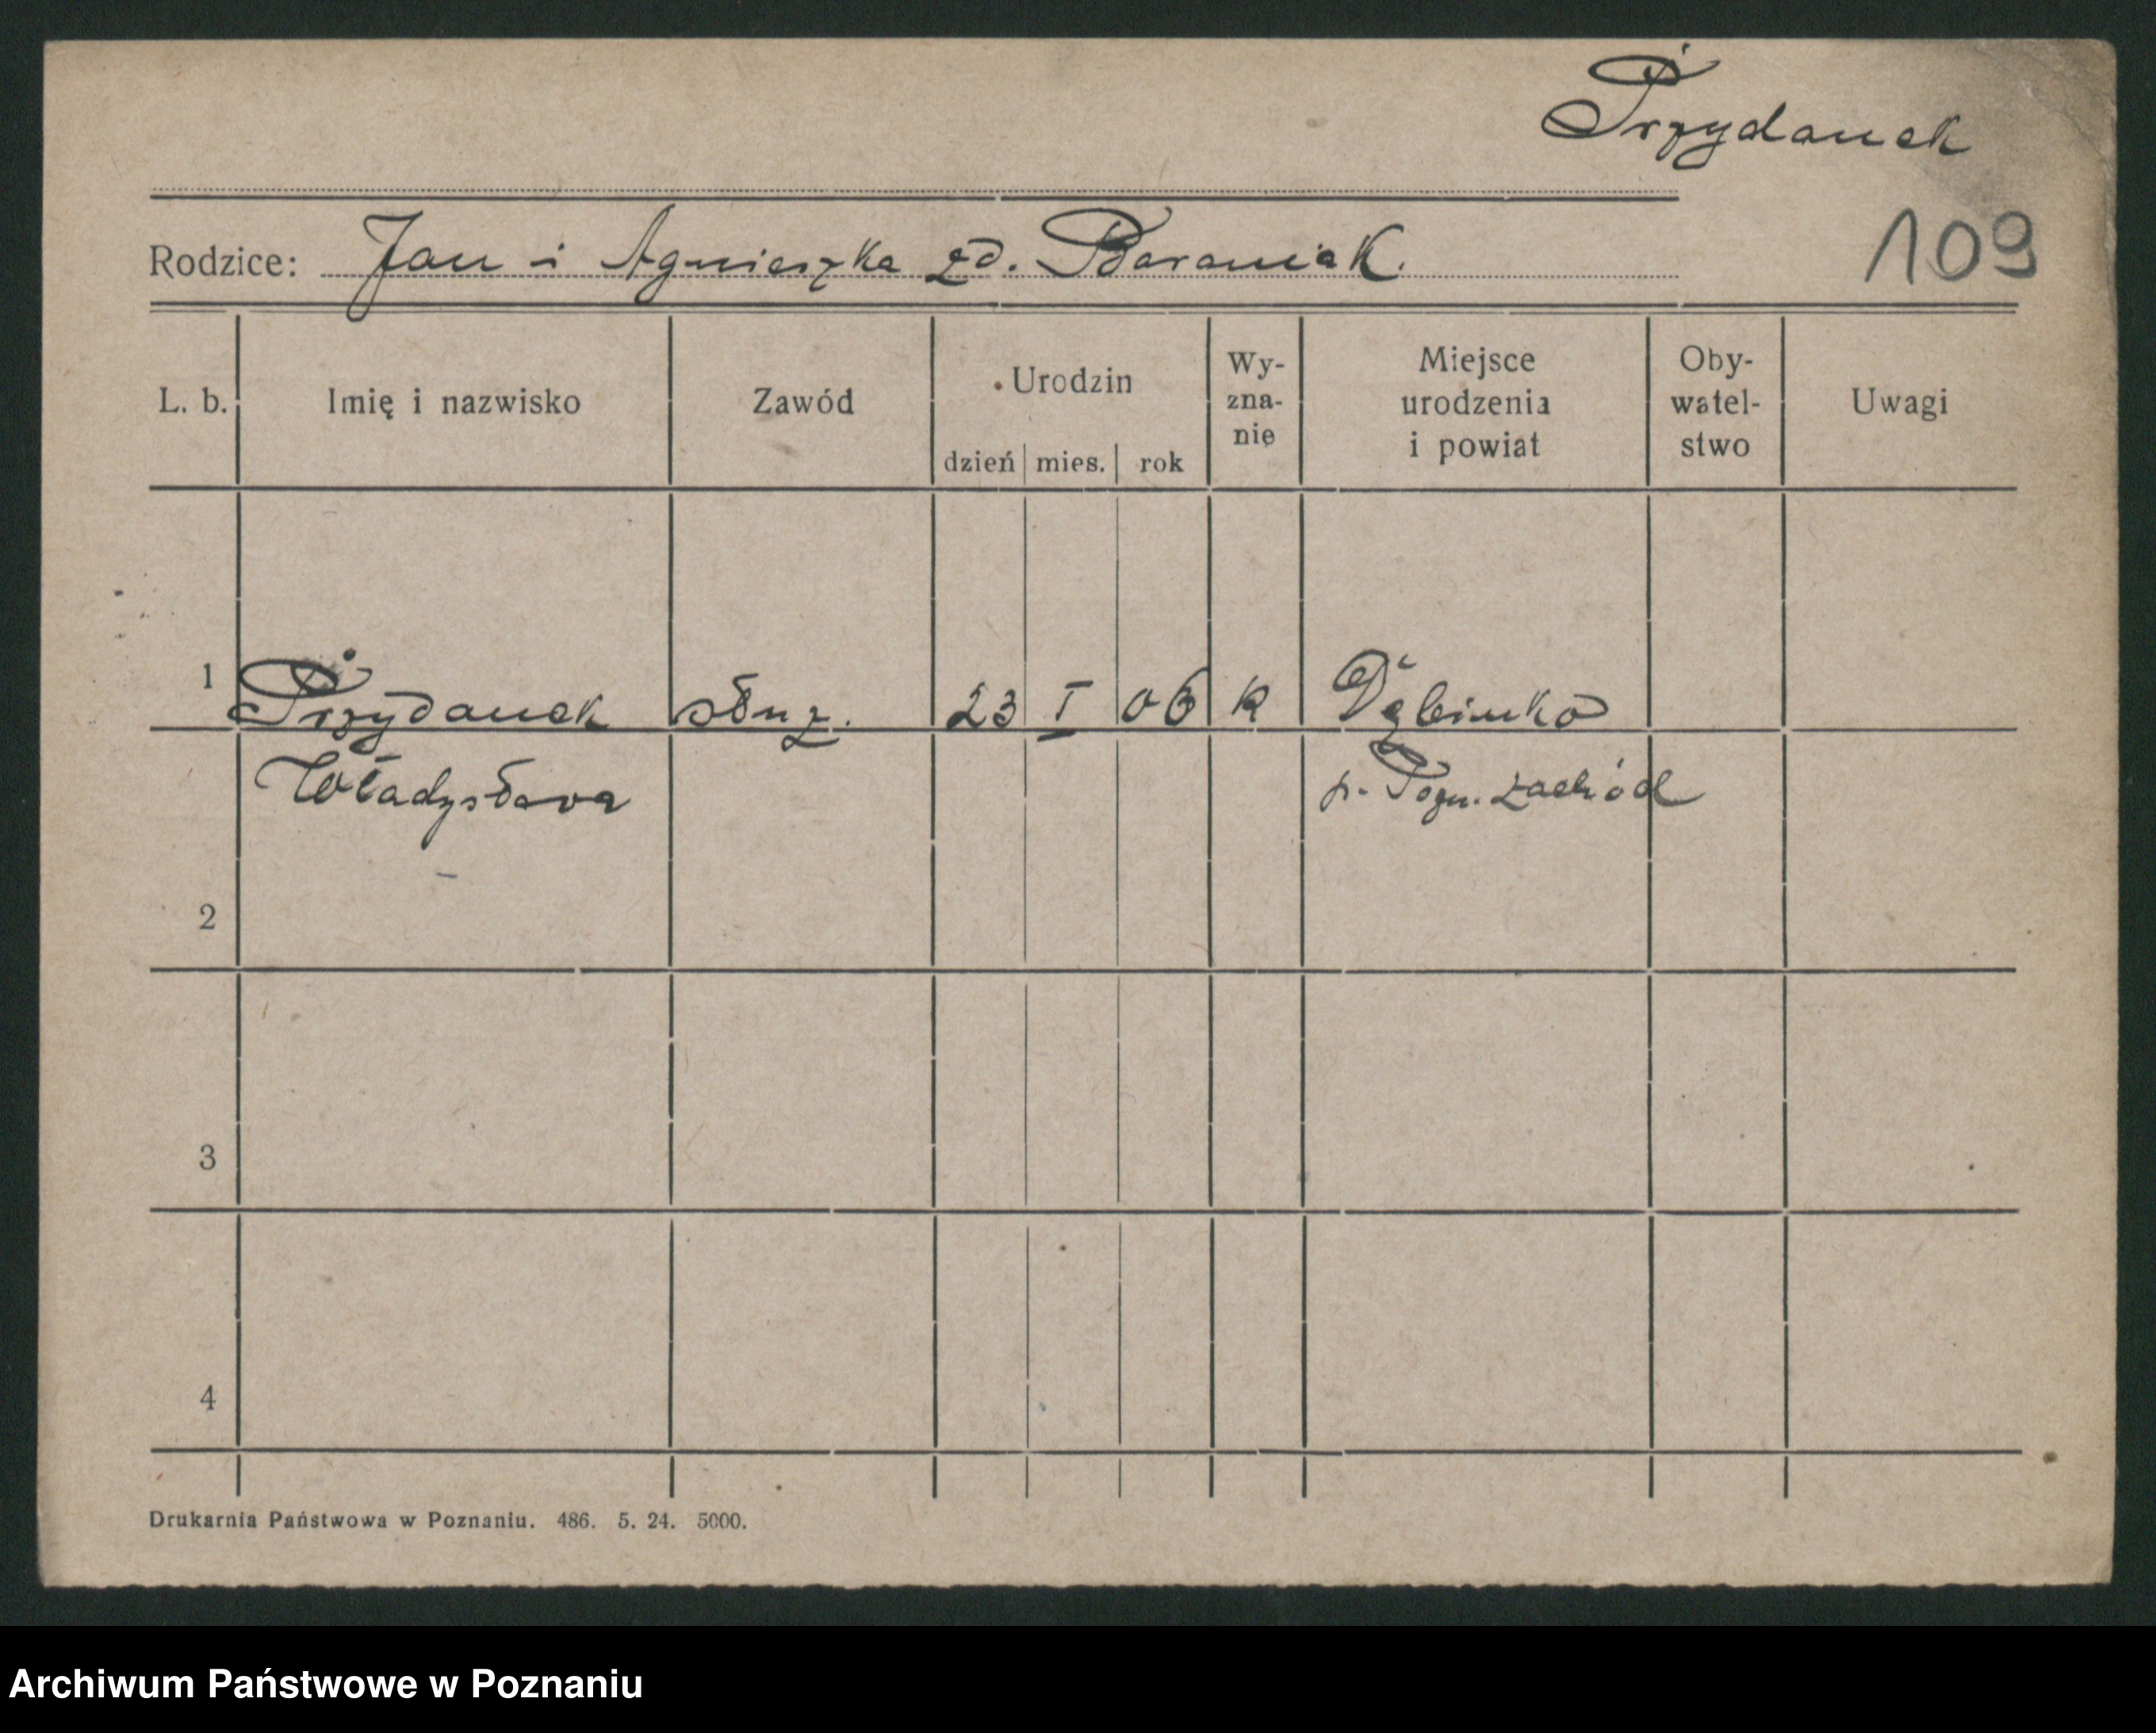 Przydanek
109
Rodzice: Jan i Agnieszka zd. Baraniak.
L. b. Imię i nazwisko Zawód Urodzin dzień mies. rok Wy- zna- nie Miejsce urodzenia i powiat Oby- watel- stwo Uwagi
1 Przydanek służ. 23 I 06 k Dębienko
Władysława p. Pozn. zachód
2
3
4
Drukarnia Państwowa w Poznaniu. 486. 5. 24. 5000.
Archiwum Państwowe w Poznaniu